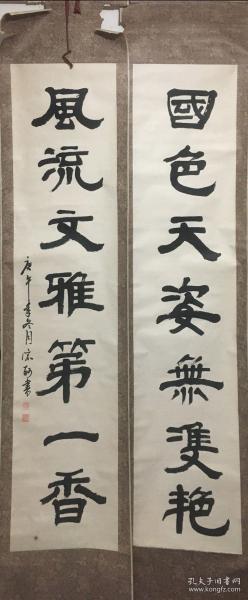 國色天姿無雙艳
風流文雅第一香
庚午季冬月
書
孔夫子旧书网
www.kongfz.com